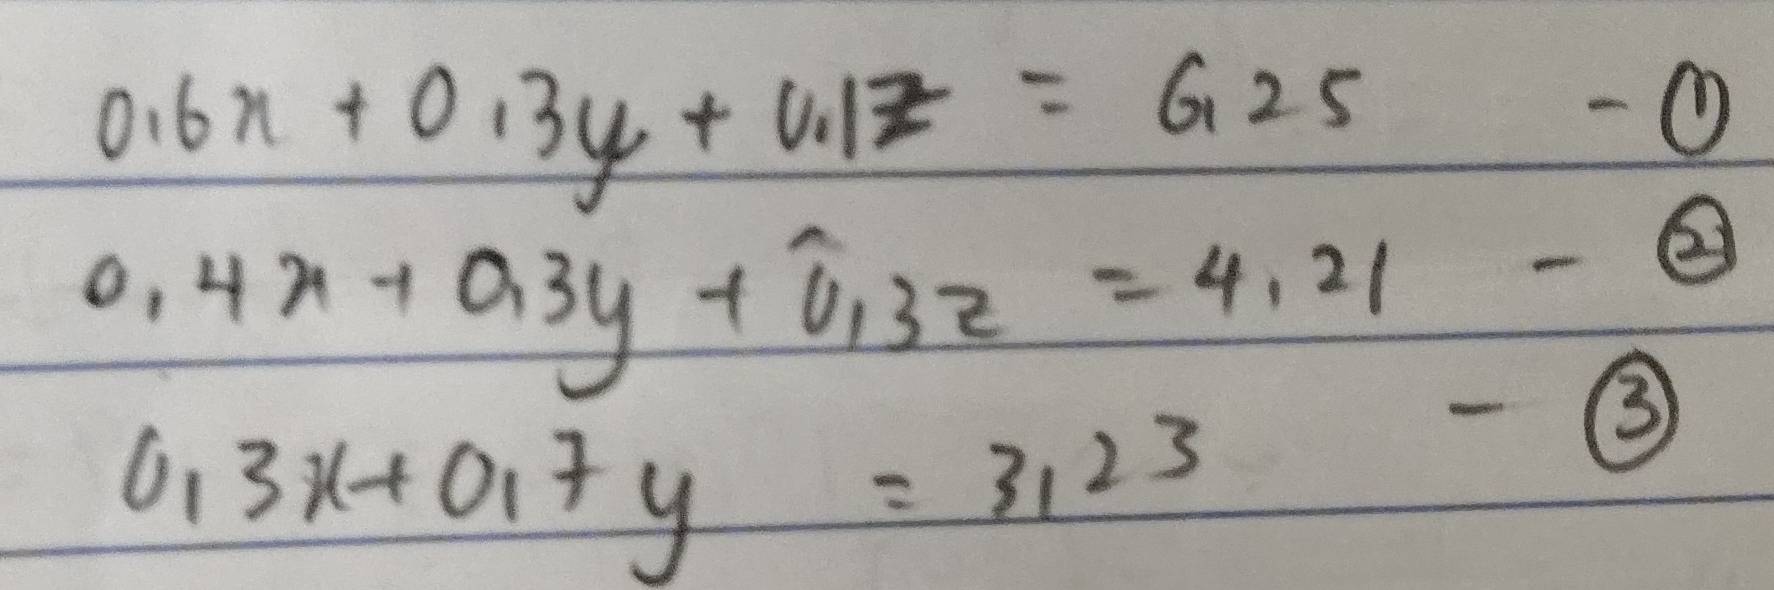 0,6x + 0,3y + 0,1z = 6,25 - ①
0,4x + 0,3y + 0,3z = 4,21 - ②
0,3x + 0,7y = 3,23 - ③